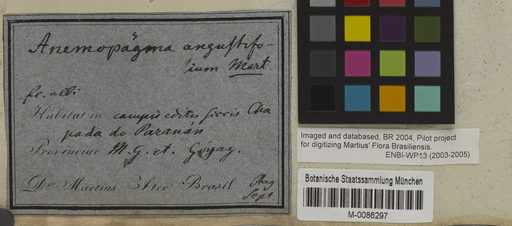 Anemopägma angustifo-
lium Mart.
fl. albi.
Habitat in campis editis siccis Cha
pada do Paranán
Provinciae M. G. et. Goyaz.
Dr Martius Iter Brasil. Aug
Sept.
Imaged and databased, BR 2004, Pilot project
for digitizing Martius' Flora Brasiliensis.
ENBI-WP13 (2003-2005)
Botanische Staatssammlung München
M-0086297